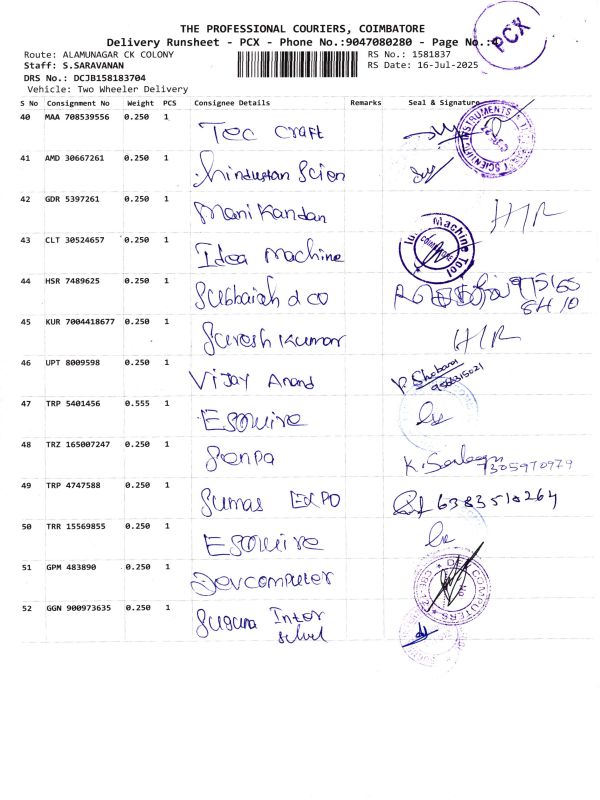 THE PROFESSIONAL COURIERS, COIMBATORE
Delivery Runsheet - PCX - Phone No.:9047080280 - Page No.:4
PCX
Route: ALAMUNAGAR CK COLONY RS No.: 1581837
Staff: S.SARAVANAN RS Date: 16-Jul-2025
DRS No.: DCJB158183704
Vehicle: Two Wheeler Delivery
S No Consignment No Weight PCS Consignee Details Remarks Seal & Signature
40 MAA 708539556 0.250 1 Tec craft
41 AMD 30667261 0.250 1 hindustan Scien
42 GDR 5397261 0.250 1 Mani Kandan H/R
43 CLT 30524657 0.250 1 Idea Machine
44 HSR 7489625 0.250 1 Subbaiah & co
45 KUR 7004418677 0.250 1 Suresh Kumar H/R
46 UPT 8009598 0.250 1 Vijay Anand
47 TRP 5401456 0.555 1 Esquire
48 TRZ 165007247 0.250 1 Senpa 7305970979
49 TRP 4747588 0.250 1 Sumas Expo 6383510264
50 TRR 15569855 0.250 1 Esquire
51 GPM 483890 0.250 1 Devcomputer
52 GGN 900973635 0.250 1 Suguna Inter